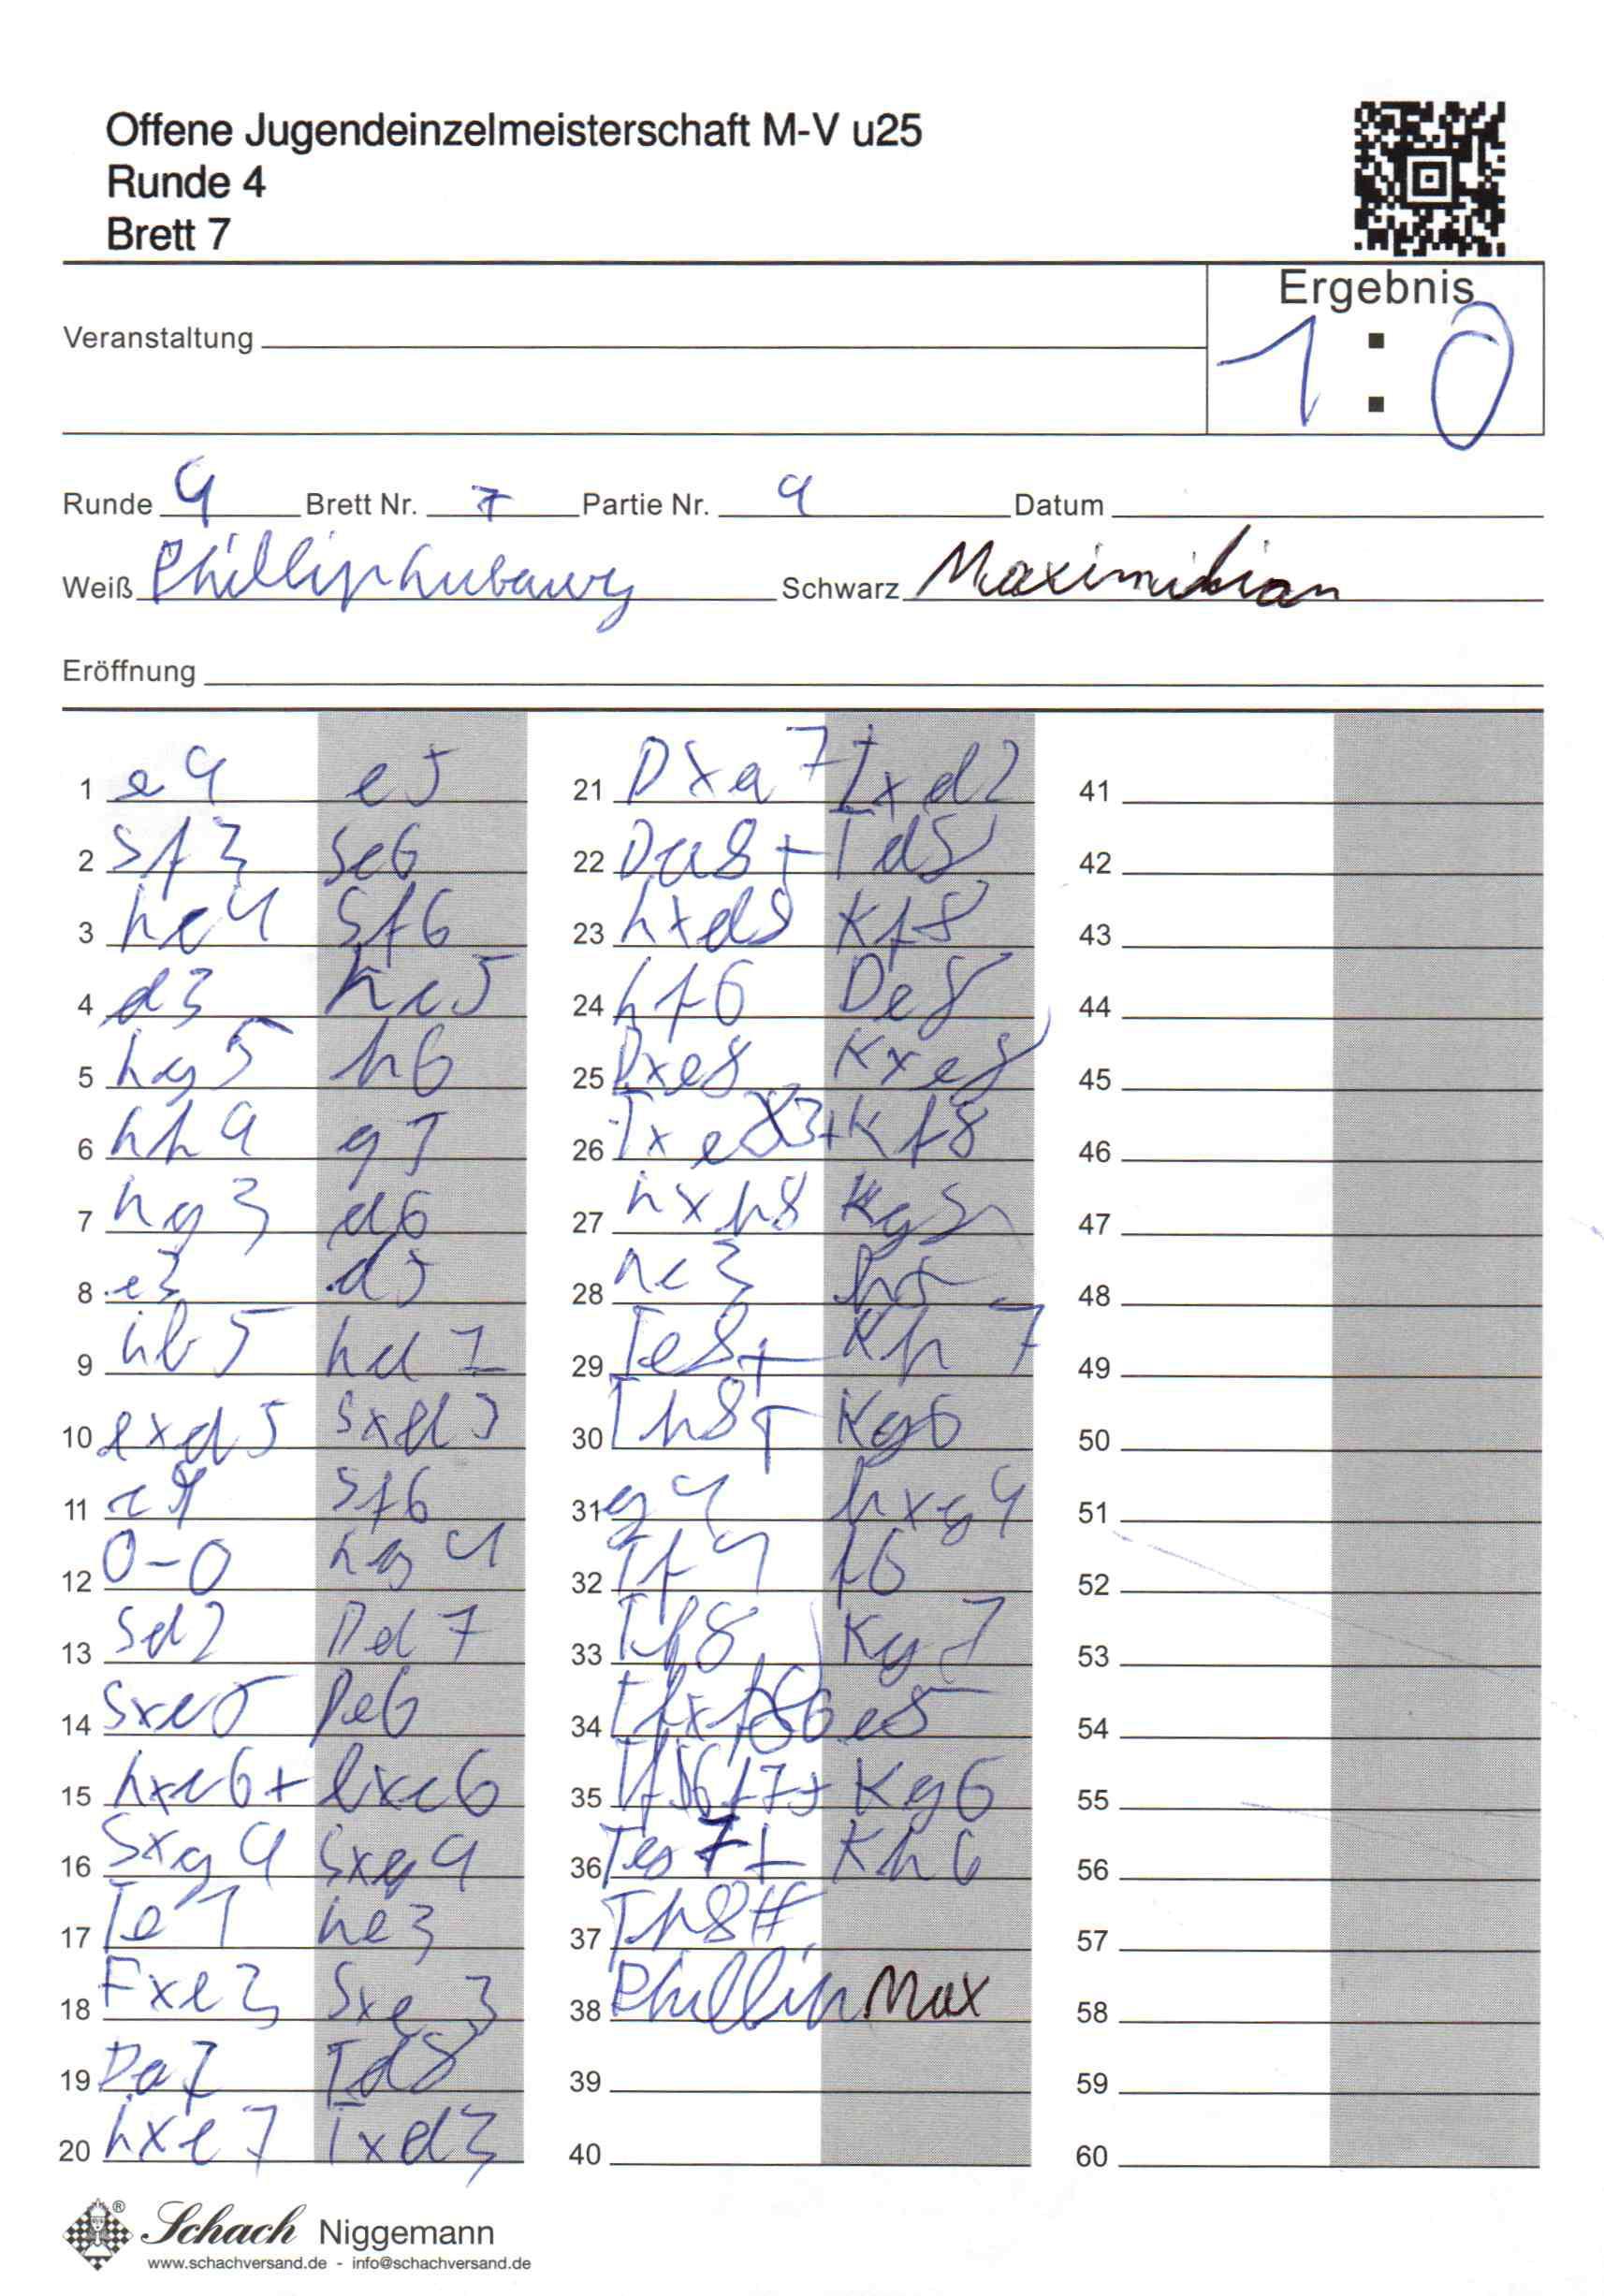 Offene Jugendeinzelmeisterschaft M-V u25
Runde 4
Brett 7
Ergebnis
1 : 0
Veranstaltung
Runde 4 Brett Nr. 7 Partie Nr. 4 Datum
Weiß Phillip Schwarz Maximilian
Eröffnung
1 e4 e5
2 Sf3 Sc6
3 hc4 Sf6
4 d3 hc5
5 hg5 h6
6 hh4 g5
7 hg3 d6
8 c3 d5
9 hb5 hd7
10 exd5 Sxd5
11 c4 Sf6
12 0-0 hg4
13 Sd2 Dd7
14 Sxe5 De6
15 hxc6+ bxc6
16 Sxg4 Sxg4
17 Te1 he3
18 Fxe3 Sxe3
19 Da4 Td8
20 hxc7 Txd3
21 Dxa7 Txd2
22 Da8+ Td8
23 hxd8 Kf8
24 hf6 De8
25 Dxe8 Kxe8
26 Txe3+ Kf8
27 hxh8 Kg8
28 hc3 h5
29 Te8+ Kh7
30 Th8+ Kg6
31 g4 hxg4
32 Tf1 f6
33 Tf8 Kg7
34 Tfxf6 c5
35 Tf7+ Kg6
36 Tg7+ Kh6
37 Th8#
38 Phillip Max
39
40
41
42
43
44
45
46
47
48
49
50
51
52
53
54
55
56
57
58
59
60
®
Schach Niggemann
www.schachversand.de - info@schachversand.de